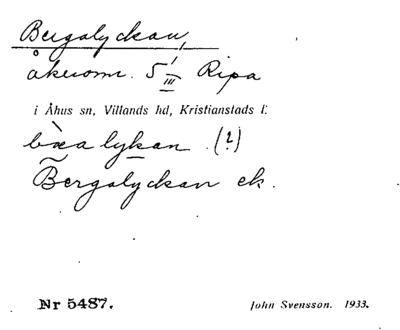 Bergalyckan,
åkeromr. 5 1/III Ripa
i Åhus sn, Villands hd, Kristianstads l.
bæ̀a lykan (?)
Bergalyckan ek.
Nr 5487.
John Svensson. 1933.